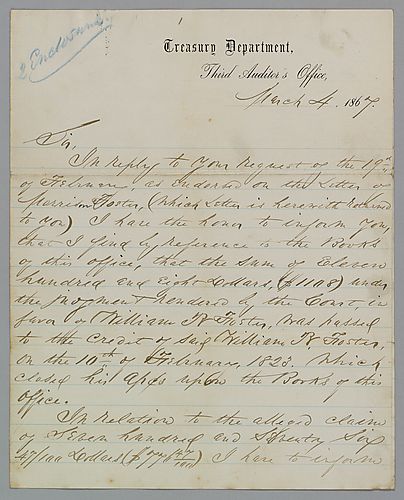 2 Enclosures.
Treasury Department,
Third Auditor's Office,
March 4, 1867.
Sir,
In reply to your request of the 19th
of February, as endorsed on the Letter of
Morrison Foster, (which Letter is herewith returned
to you) I have the honor to inform you,
that I find by reference to the Books
of this office, that the sum of Eleven
hundred and eight Dollars, ($1108) under
the judgment rendered by the Court, in
favor of William B Foster, was passed
to the credit of said William B Foster,
on the 10th of February, 1823. Which
closed his a/cs upon the Books of this
office.
In relation to the alleged claim
of Seven hundred and Seventy Six
47/100 Dollars ($776 47/100) I have to inform